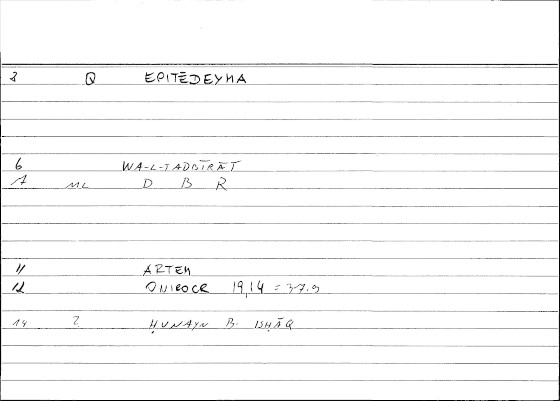 3 Q EPITĒDEYMA
6 WA-L-TADBĪRĀT
7 ML D B R
11 ARTEM
12 ONIROCR 19,14 = 37.9
14 2 ḤUNAYN B. ISḤĀQ